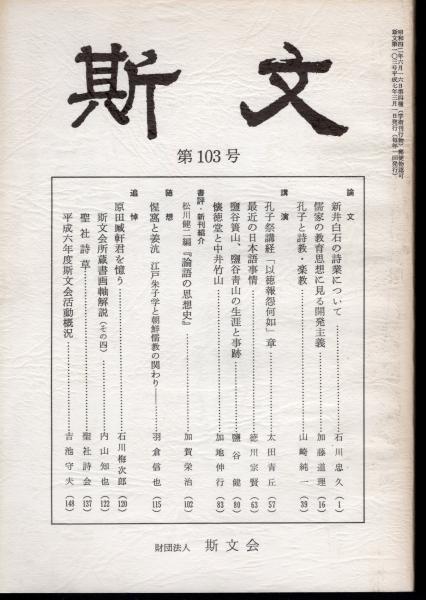 斯文
第103号
昭和四二年六月一六日第四種(学術刊行物)郵便物認可
斯文第一〇三号平成七年三月一日発行(毎年一回発行)
論文
新井白石の詩業について 石川忠久(1)
儒家の教育思想に見る開発主義 加藤道理(16)
孔子と詩教・楽教 山崎純一(39)
講演
孔子祭講経「以徳報怨何如」章 太田青丘(57)
最近の日本語事情 徳川宗賢(63)
鹽谷簣山、鹽谷青山の生涯と事跡 鹽谷健(80)
懐徳堂と中井竹山 加地伸行(83)
書評・新刊紹介
松川健二編『論語の思想史』 加賀栄治(102)
随想
惺窩と姜沆 江戸朱子学と朝鮮儒教の関わり 羽倉信也(115)
追悼
原田臧軒君を憶う 石川梅次郎(120)
斯文会所蔵書画軸解説(その四) 内山知也(122)
聖社詩草 聖社詩会(137)
平成六年度斯文会活動概況 吉池守夫(148)
財団法人 斯文会